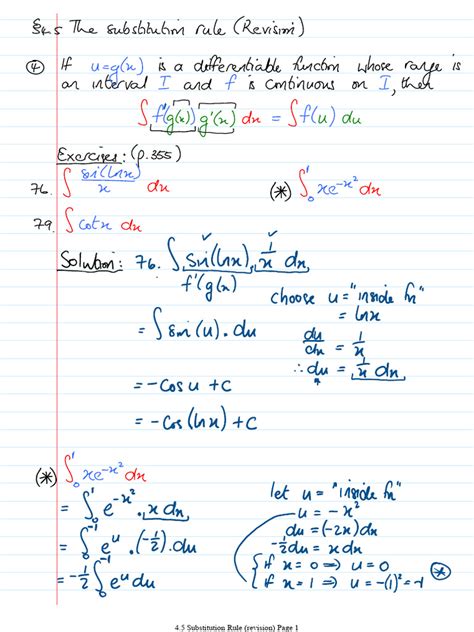 §4.5 The substitution rule (Revision)
④ If u=g(x) is a differentiable function whose range is
an interval I and f is continuous on I, then
∫f'(g(x)) g'(x) dx = ∫f(u) du
Exercises: (p.355)
76. ∫ sin(lnx)/x dx (*) ∫₀¹ xe^{-x²} dx
79. ∫cotx dx
Solution: 76. ∫ sin(lnx). 1/x dx,
f'(g(x)
choose u = "inside fn"
= lnx
= ∫sin(u). du
du/dx = 1/x
∴ du = 1/x dx,
= -cos u + c
= -cos(lnx) + c
(*) ∫₀¹ xe^{-x²} dx
let u = "inside fn"
= ∫₀¹ e^{-x²}. x dx,
u = -x²
du = (-2x)dx
= ∫₀⁻¹ e^u .(-1/2).du
-1/2 du = x dx
if x = 0 ⇒ u = 0
= -1/2 ∫₀⁻¹ e^u du
if x = 1 ⇒ u = -(1)² = -1 (*)
4.5 Substitution Rule (revision) Page 1